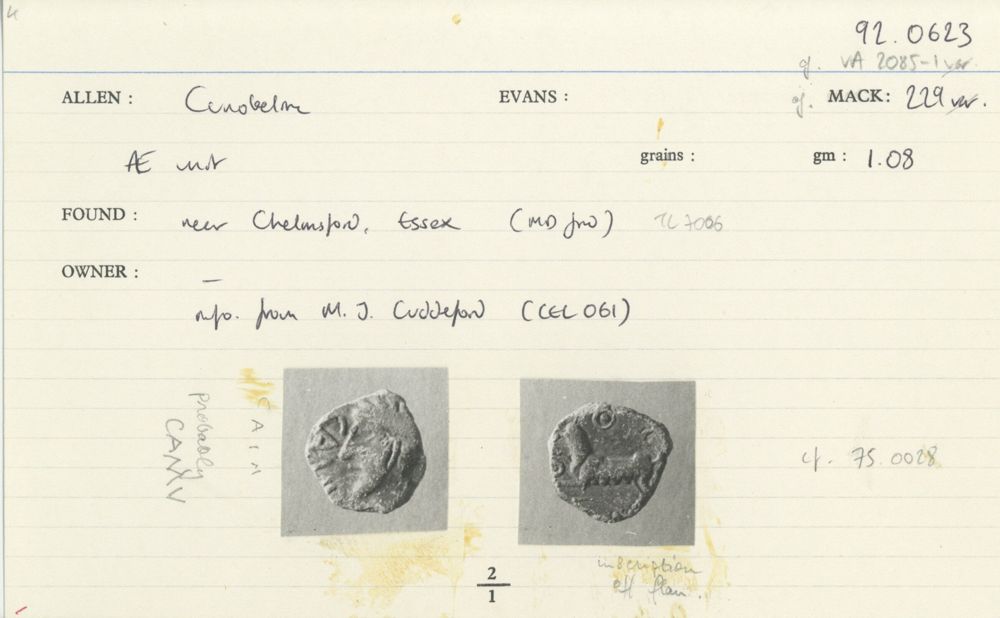 92.0623
cf. VA 2085-1 var.
ALLEN : Cunobeline EVANS : cf. MACK: 229 var.
Æ unit grains : gm : 1.08
FOUND : near Chelmsford, Essex (MD find) TL 7006
OWNER : —
info. from M. J. Cuddeford (CEL 061)
probably
CAMV
C A I M
cf. 75.0028
inscription
off flan.
2
1